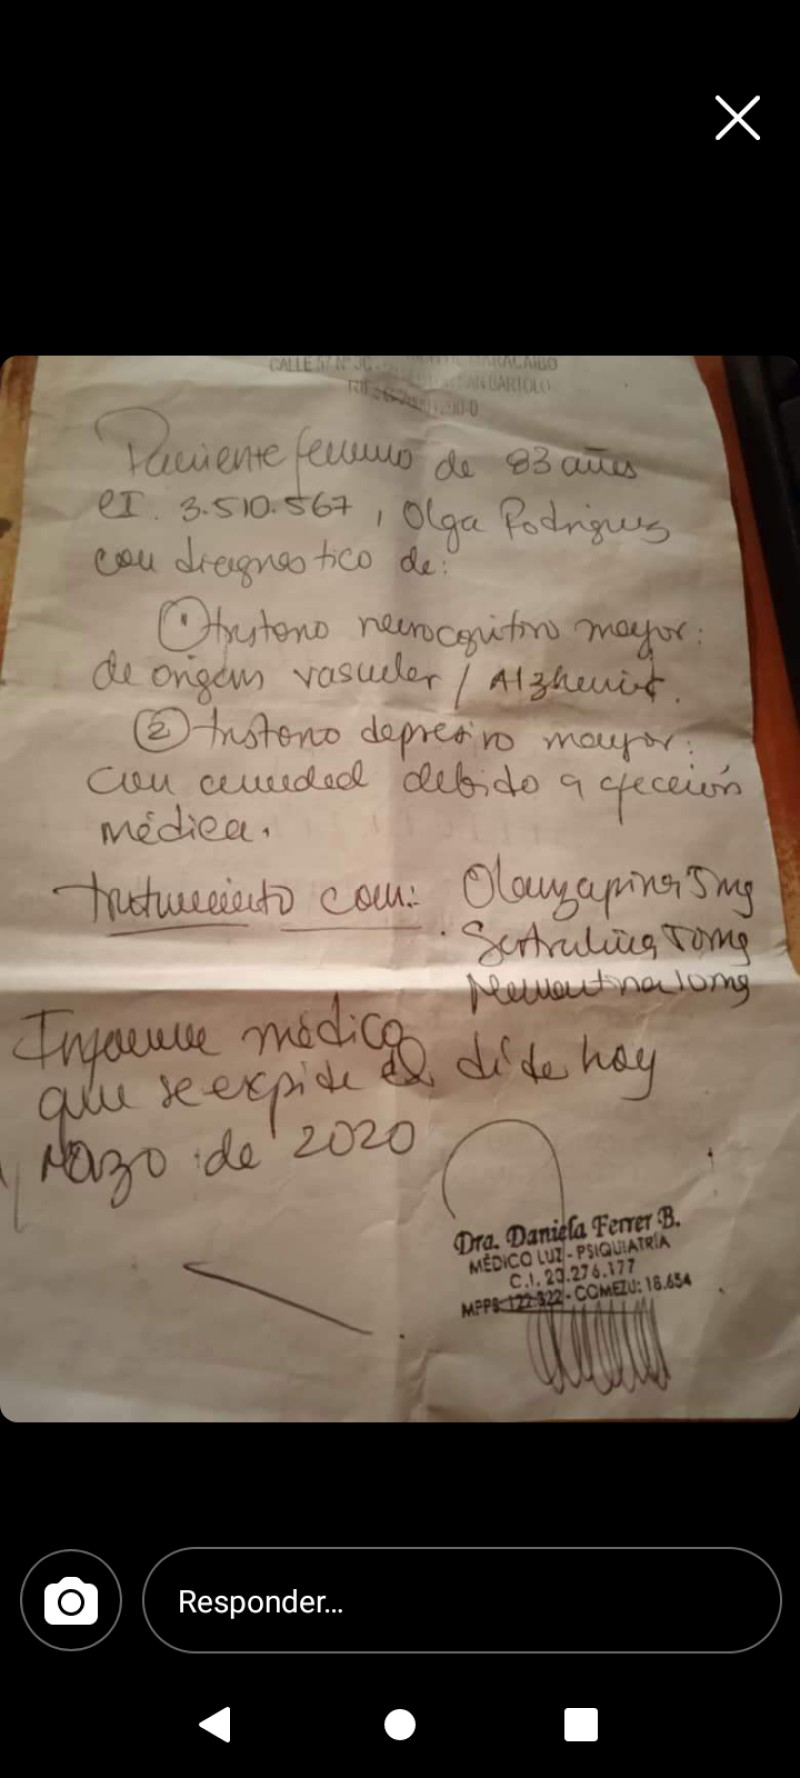 CALLE 57 Nº 3C MARACAIBO
SAN BARTOLO
Paciente femenino de 83 años
CI. 3.510.567, Olga Rodriguez
con diagnostico de:
① trastorno neurocognitivo mayor:
de origen vascular / Alzheimer.
② trastorno depresivo mayor:
con ansiedad debido a afección
médica.
tratamiento com: Olanzapina 5mg
Sertralina 50mg
Memantina 10mg
Informe médico
que se expide el día de hoy
Marzo de 2020
Dra. Daniela Ferrer B.
MÉDICO LUZ - PSIQUIATRÍA
C.I. 20.276.177
MPPS: 122.322 - COMEZU: 18.654
Responder...